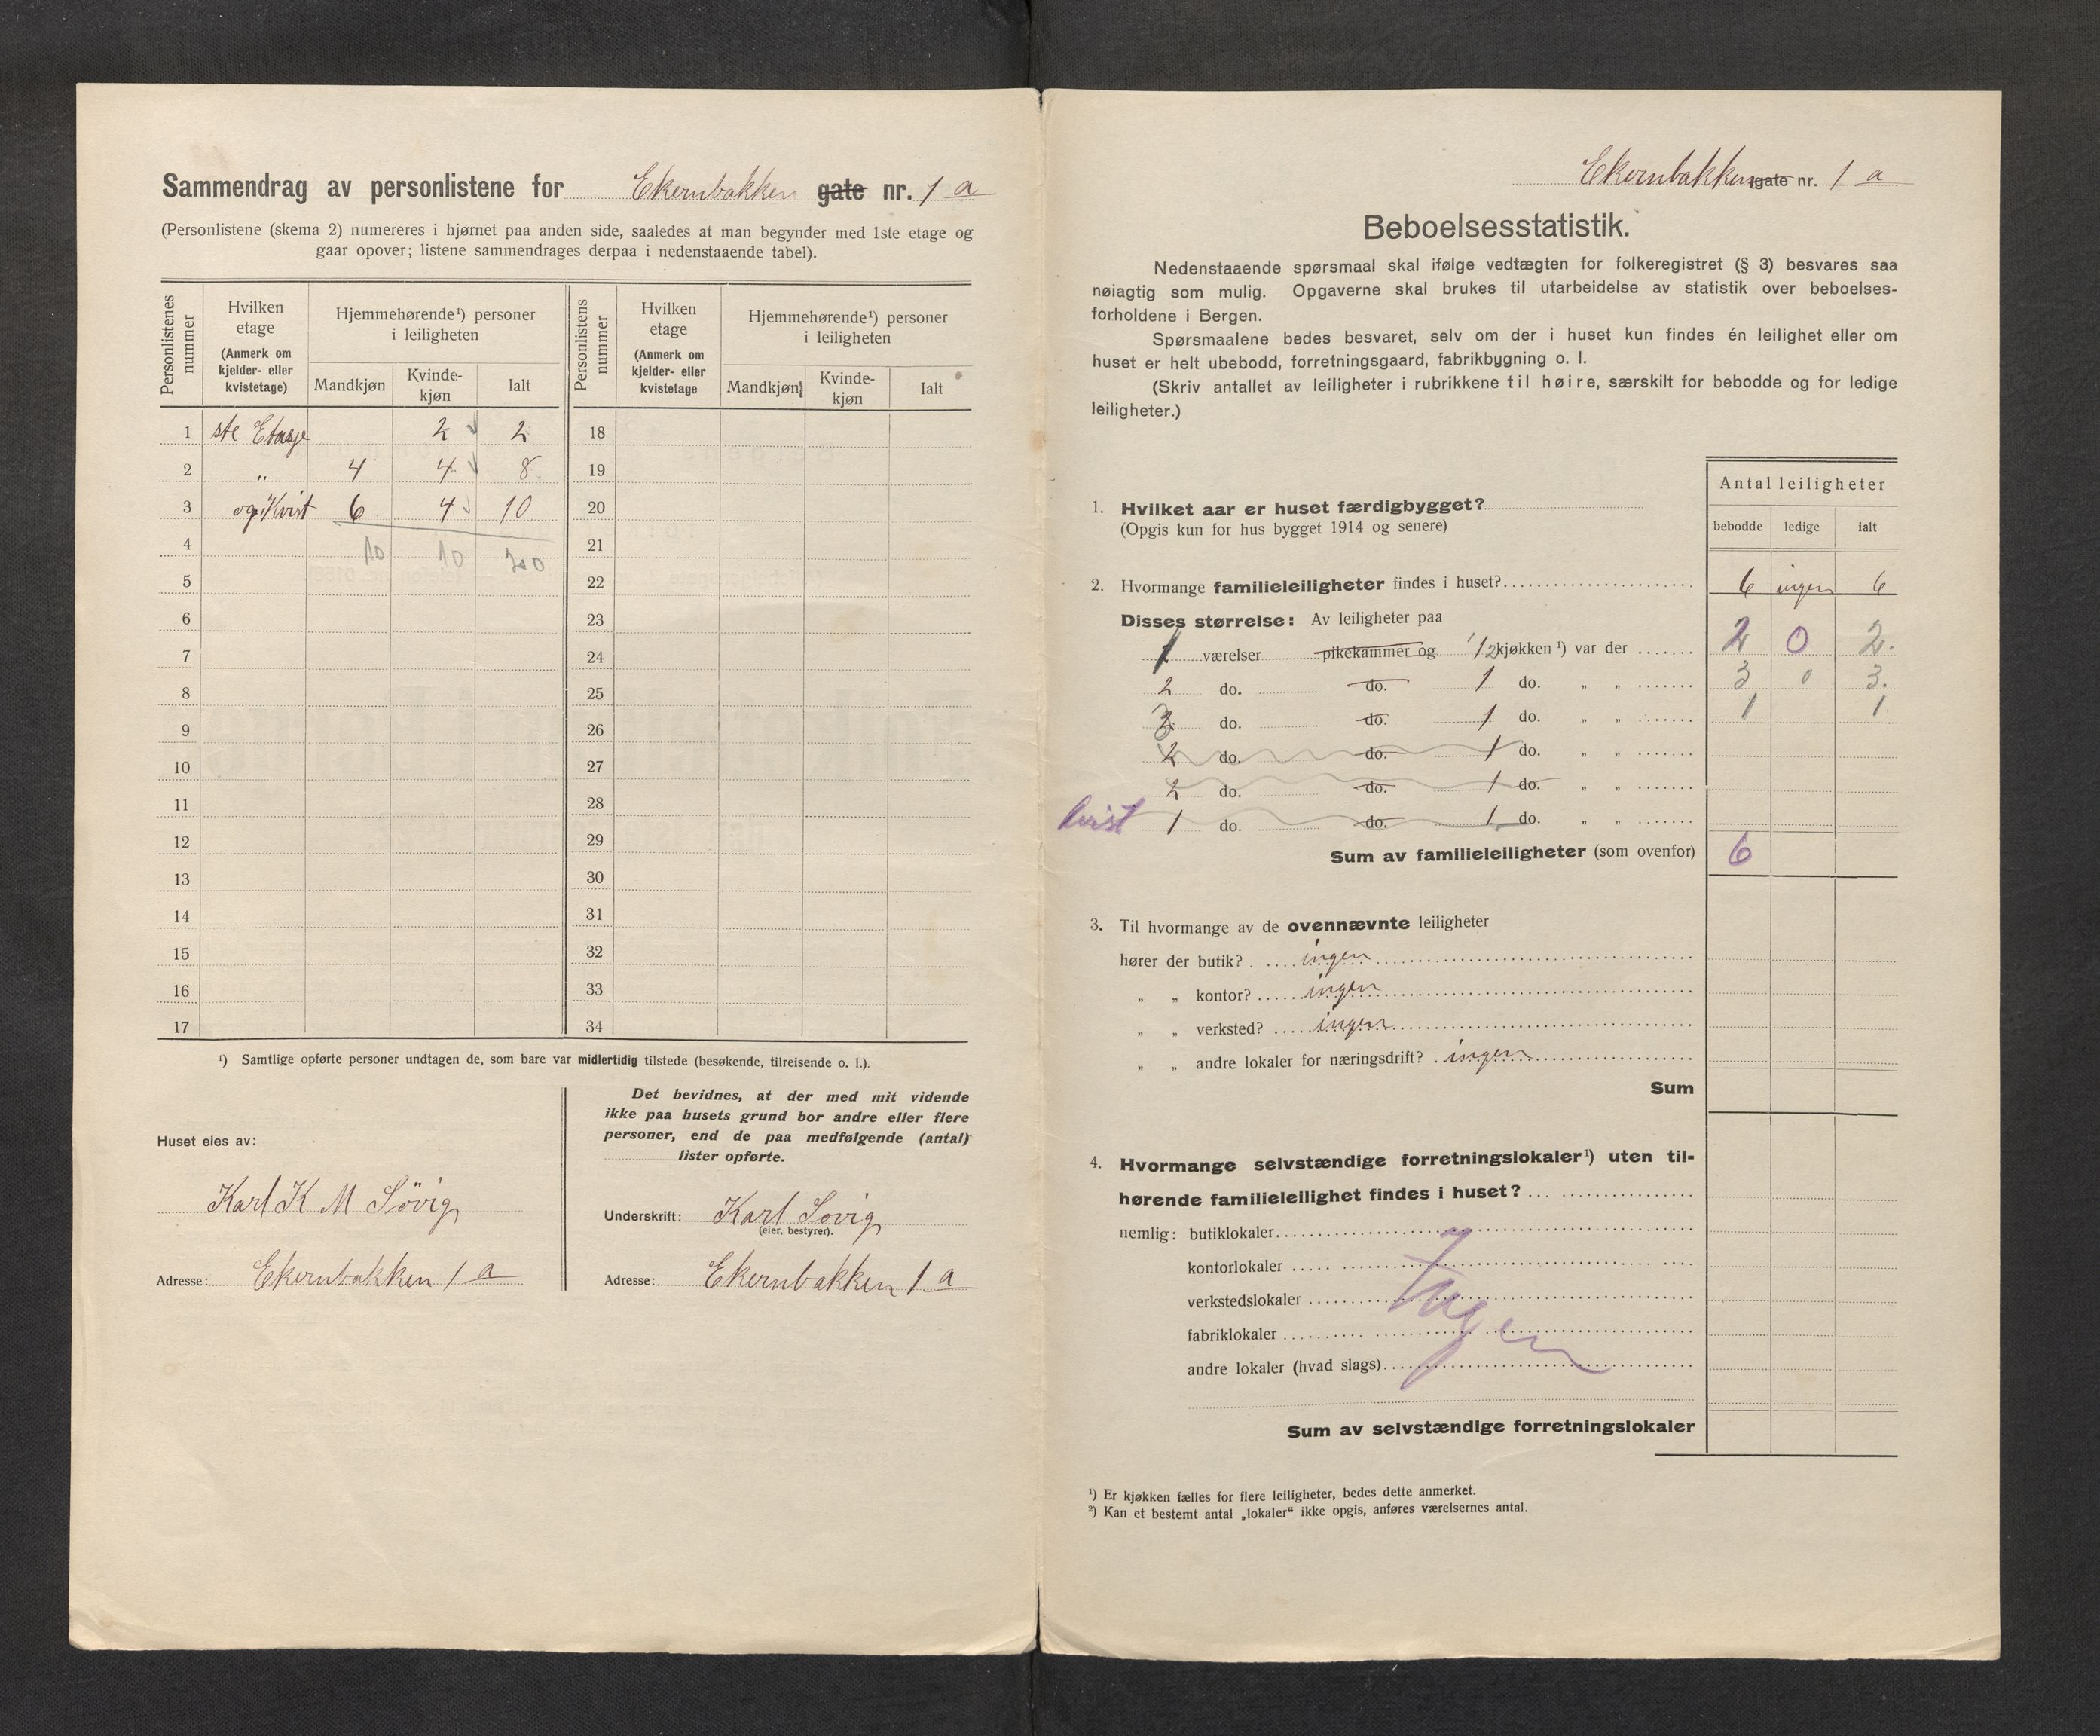 Sammendrag av personlistene for Ekernbakken gate nr. 1 a
(Personlistene (skema 2) numereres i hjørnet paa anden side, saaledes at man begynder med 1ste etage og
gaar opover; listene sammendrages derpaa i nedenstaaende tabel).
Personlistenes nummer
Hvilken etage (Anmerk om kjelder- eller kvistetage)
Hjemmehørende¹) personer i leiligheten
Mandkjøn Kvinde-kjøn Ialt
Personlistens nummer
Hvilken etage (Anmerk om kjelder- eller kvistetage
Hjemmehørende¹) personer i leiligheten
Mandkjøn Kvinde-kjøn Ialt
1 ste Etasje 2 2 18
2 „ 4 4 8 19
3 og Kvist 6 4 10 20
4 10 10 20 21
5 22
6 23
7 24
8 25
9 26
10 27
11 28
12 29
13 30
14 31
15 32
16 33
17 34
¹) Samtlige opførte personer undtagen de, som bare var midlertidig tilstede (besøkende, tilreisende o. l.).
Huset eies av:
Karl K M Sövig
Adresse: Ekernbakken 1 a
Det bevidnes, at der med mit vidende
ikke paa husets grund bor andre eller flere
personer, end de paa medfølgende (antal)
lister opførte.
Underskrift: Karl Sövig
(eier, bestyrer).
Adresse: Ekernbakken 1 a
Ekernbakken gate nr. 1 a
Beboelsesstatistik.
Nedenstaaende spørsmaal skal ifølge vedtægten for folkeregistret (§ 3) besvares saa
nøiagtig som mulig. Opgaverne skal brukes til utarbeidelse av statistik over beboelses-
forholdene i Bergen.
Spørsmaalene bedes besvaret, selv om der i huset kun findes én leilighet eller om
huset er helt ubebodd, forretningsgaard, fabrikbygning o. l.
(Skriv antallet av leiligheter i rubrikkene til høire, særskilt for bebodde og for ledige
leiligheter.)
Antal leiligheter
bebodde ledige ialt
1. Hvilket aar er huset færdigbygget?
(Opgis kun for hus bygget 1914 og senere)
2. Hvormange familieleiligheter findes i huset? 6 ingen 6
Disses størrelse: Av leiligheter paa
1 værelser pikekammer og 1 kjøkken ¹) var der 2 0 2.
2 do. do. 1 do. „ „ 3 0 3.
3 do. do. 1 do. „ „ 1 1
2 do. do. 1 do. „ „
2 do. do. 1 do. „ „
kvist 1 do. do. 1 do. „ „
Sum av familieleiligheter (som ovenfor) 6
3. Til hvormange av de ovennævnte leiligheter
hører der butik? ingen
„ „ kontor? ingen
„ „ verksted? ingen
„ „ andre lokaler for næringsdrift? ingen
Sum
4. Hvormange selvstændige forretningslokaler¹) uten til-
hørende familieleilighet findes i huset?
nemlig: butiklokaler
kontorlokaler
verkstedslokaler Ingen
fabriklokaler
andre lokaler (hvad slags)
Sum av selvstændige forretningslokaler
¹) Er kjøkken fælles for flere leiligheter, bedes dette anmerket.
²) Kan et bestemt antal „lokaler“ ikke opgis, anføres værelsernes antal.